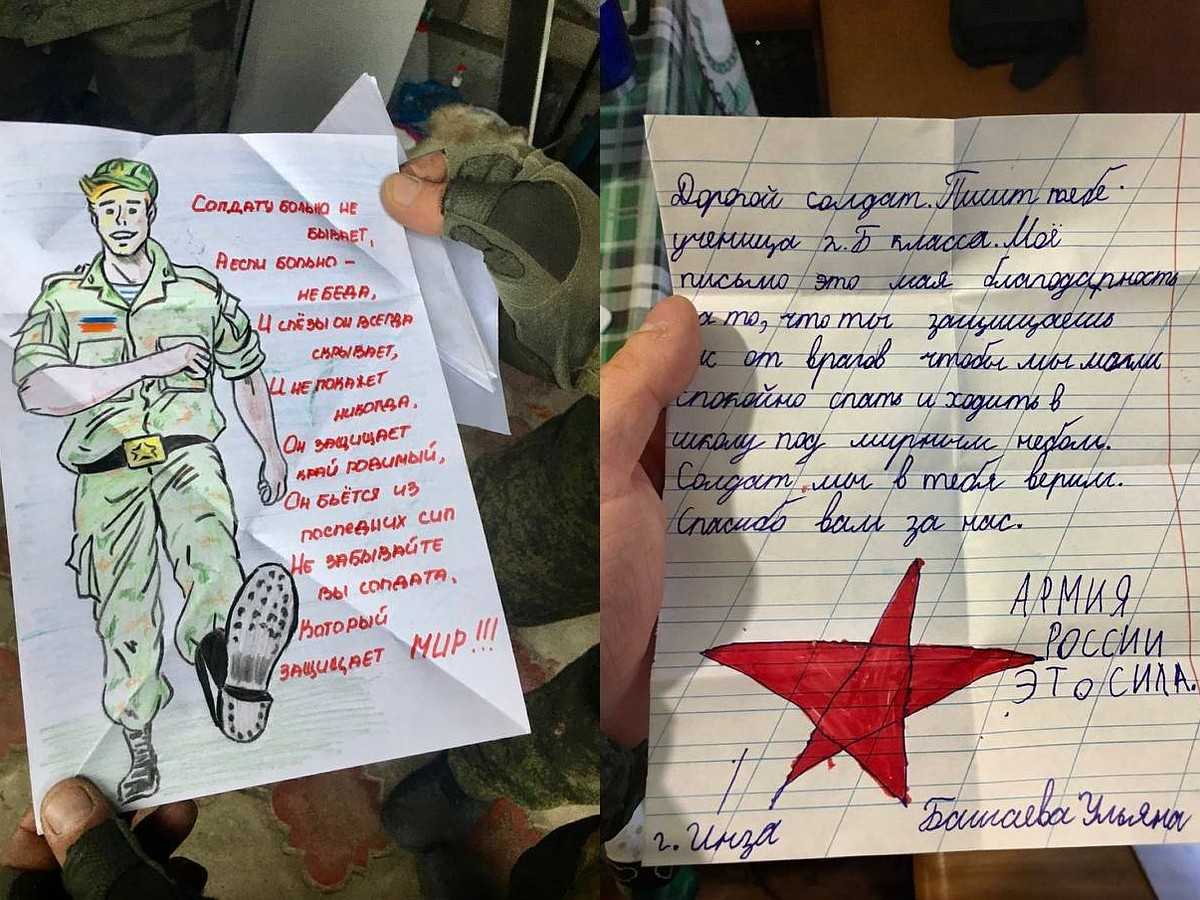 Солдату больно не
бывает,
А если больно –
не беда,
И слёзы он всегда
скрывает,
И не покажет
никогда.
Он защищает
край родимый,
Он бьётся из
последних сил
Не забывайте
вы солдата,
Который
защищает МИР!!!
Дорогой солдат. Пишит тебе
ученица 2.Б класса. Моё
письмо это мая благодарность
за то, что ты защищаешь
с от врагов чтобы мы могли
спокойно спать и ходить в
школу под мирным небом.
Солдат мы в тебя верим.
Спасибо вам за нас.
АРМИЯ
РОССИИ
ЭТО СИЛА.
г. Инза
Башаева Ульяна